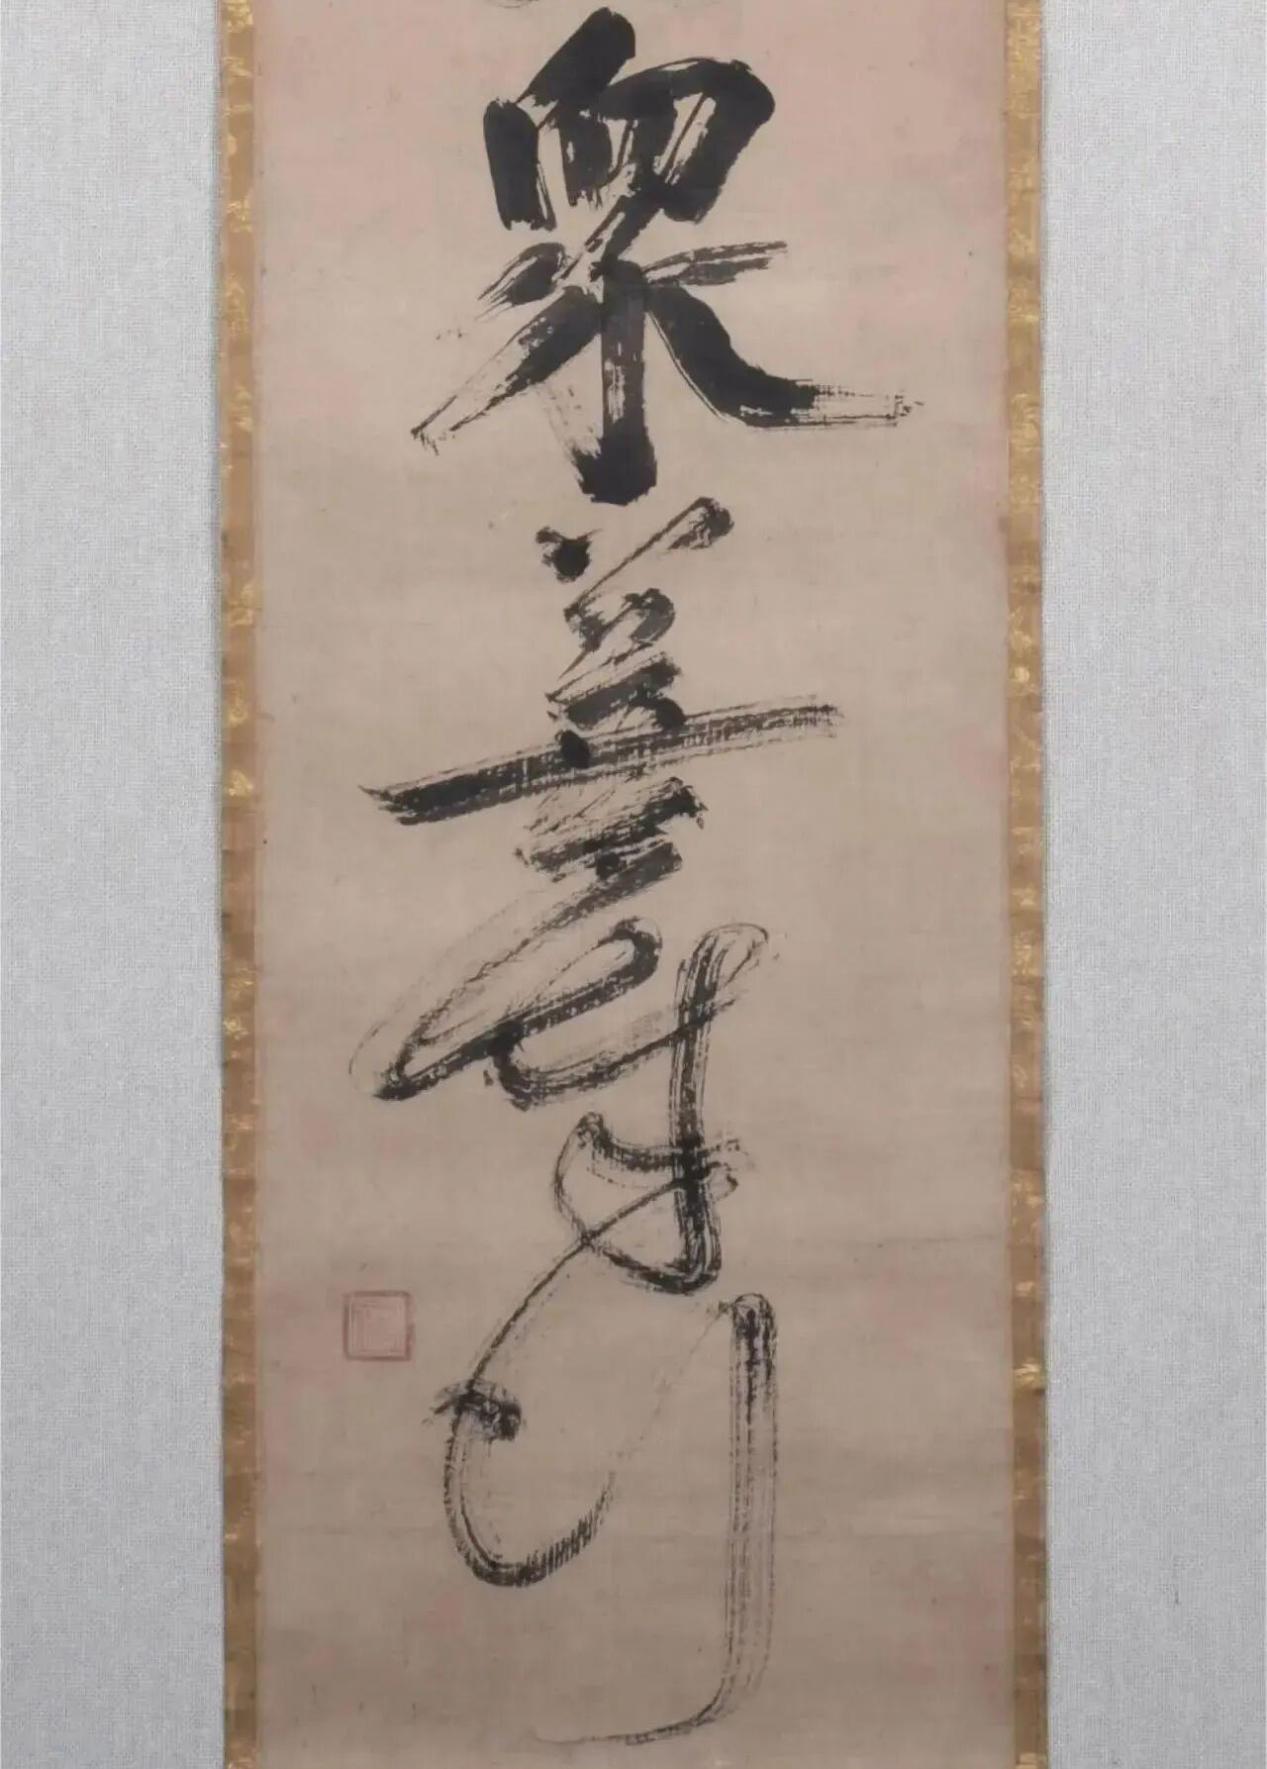 衆善奉行